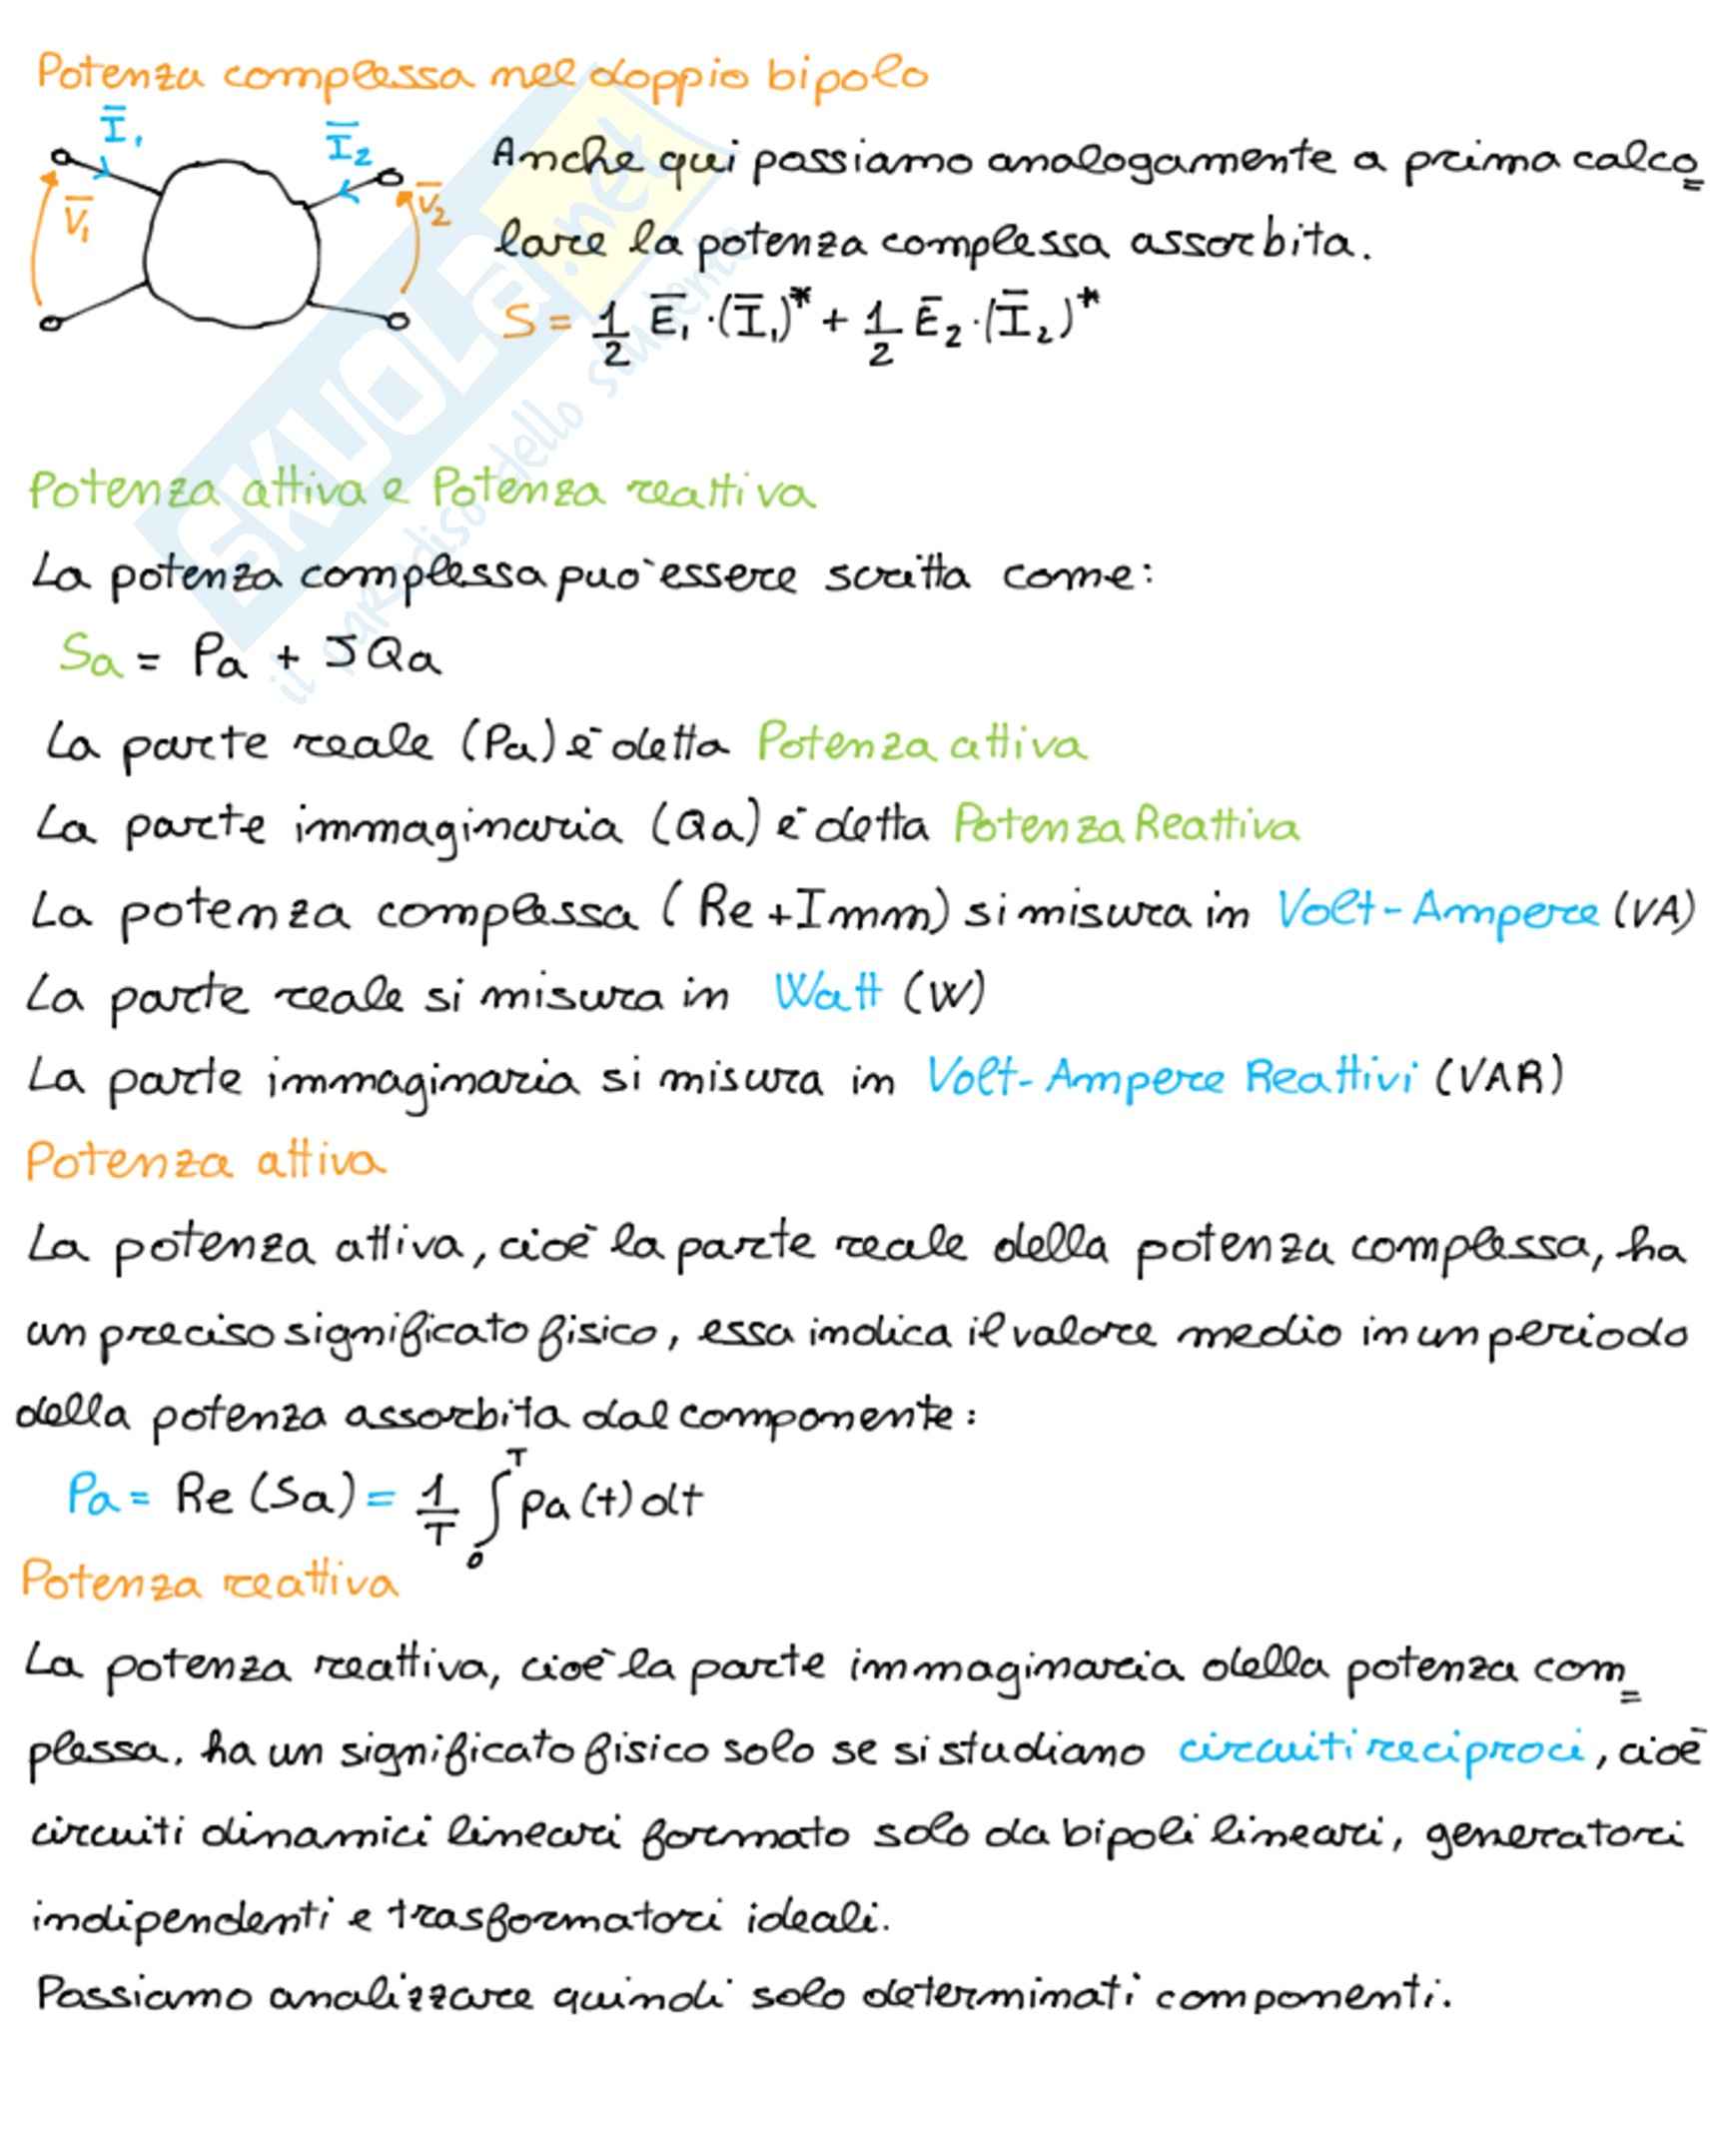 Potenza complessa nel doppio bipolo
I̅₁
I̅₂
V̅₁
V̅₂
Anche qui possiamo analogamente a prima calco=
lare la potenza complessa assorbita.
S = 1/2 E̅₁ · (I̅₁)* + 1/2 E̅₂ · (I̅₂)*
SKUOLA.net
il paradiso dello studente
Potenza attiva e Potenza reattiva
La potenza complessa può essere scritta come:
Sa = Pa + JQa
La parte reale (Pa) è detta Potenza attiva
La parte immaginaria (Qa) è detta Potenza Reattiva
La potenza complessa (Re + Imm) si misura in Volt-Ampere (VA)
La parte reale si misura in Watt (W)
La parte immaginaria si misura in Volt-Ampere Reattivi (VAR)
Potenza attiva
La potenza attiva, cioè la parte reale della potenza complessa, ha
un preciso significato fisico, essa indica il valore medio in un periodo
della potenza assorbita dal componente:
Pa = Re (Sa) = 1/T ∫₀ᵀ pa (t) dt
Potenza reattiva
La potenza reattiva, cioè la parte immaginaria della potenza com=
plessa, ha un significato fisico solo se si studiano circuiti reciproci, cioè
circuiti dinamici lineari formato solo da bipoli lineari, generatori
indipendenti e trasformatori ideali.
Possiamo analizzare quindi solo determinati componenti.